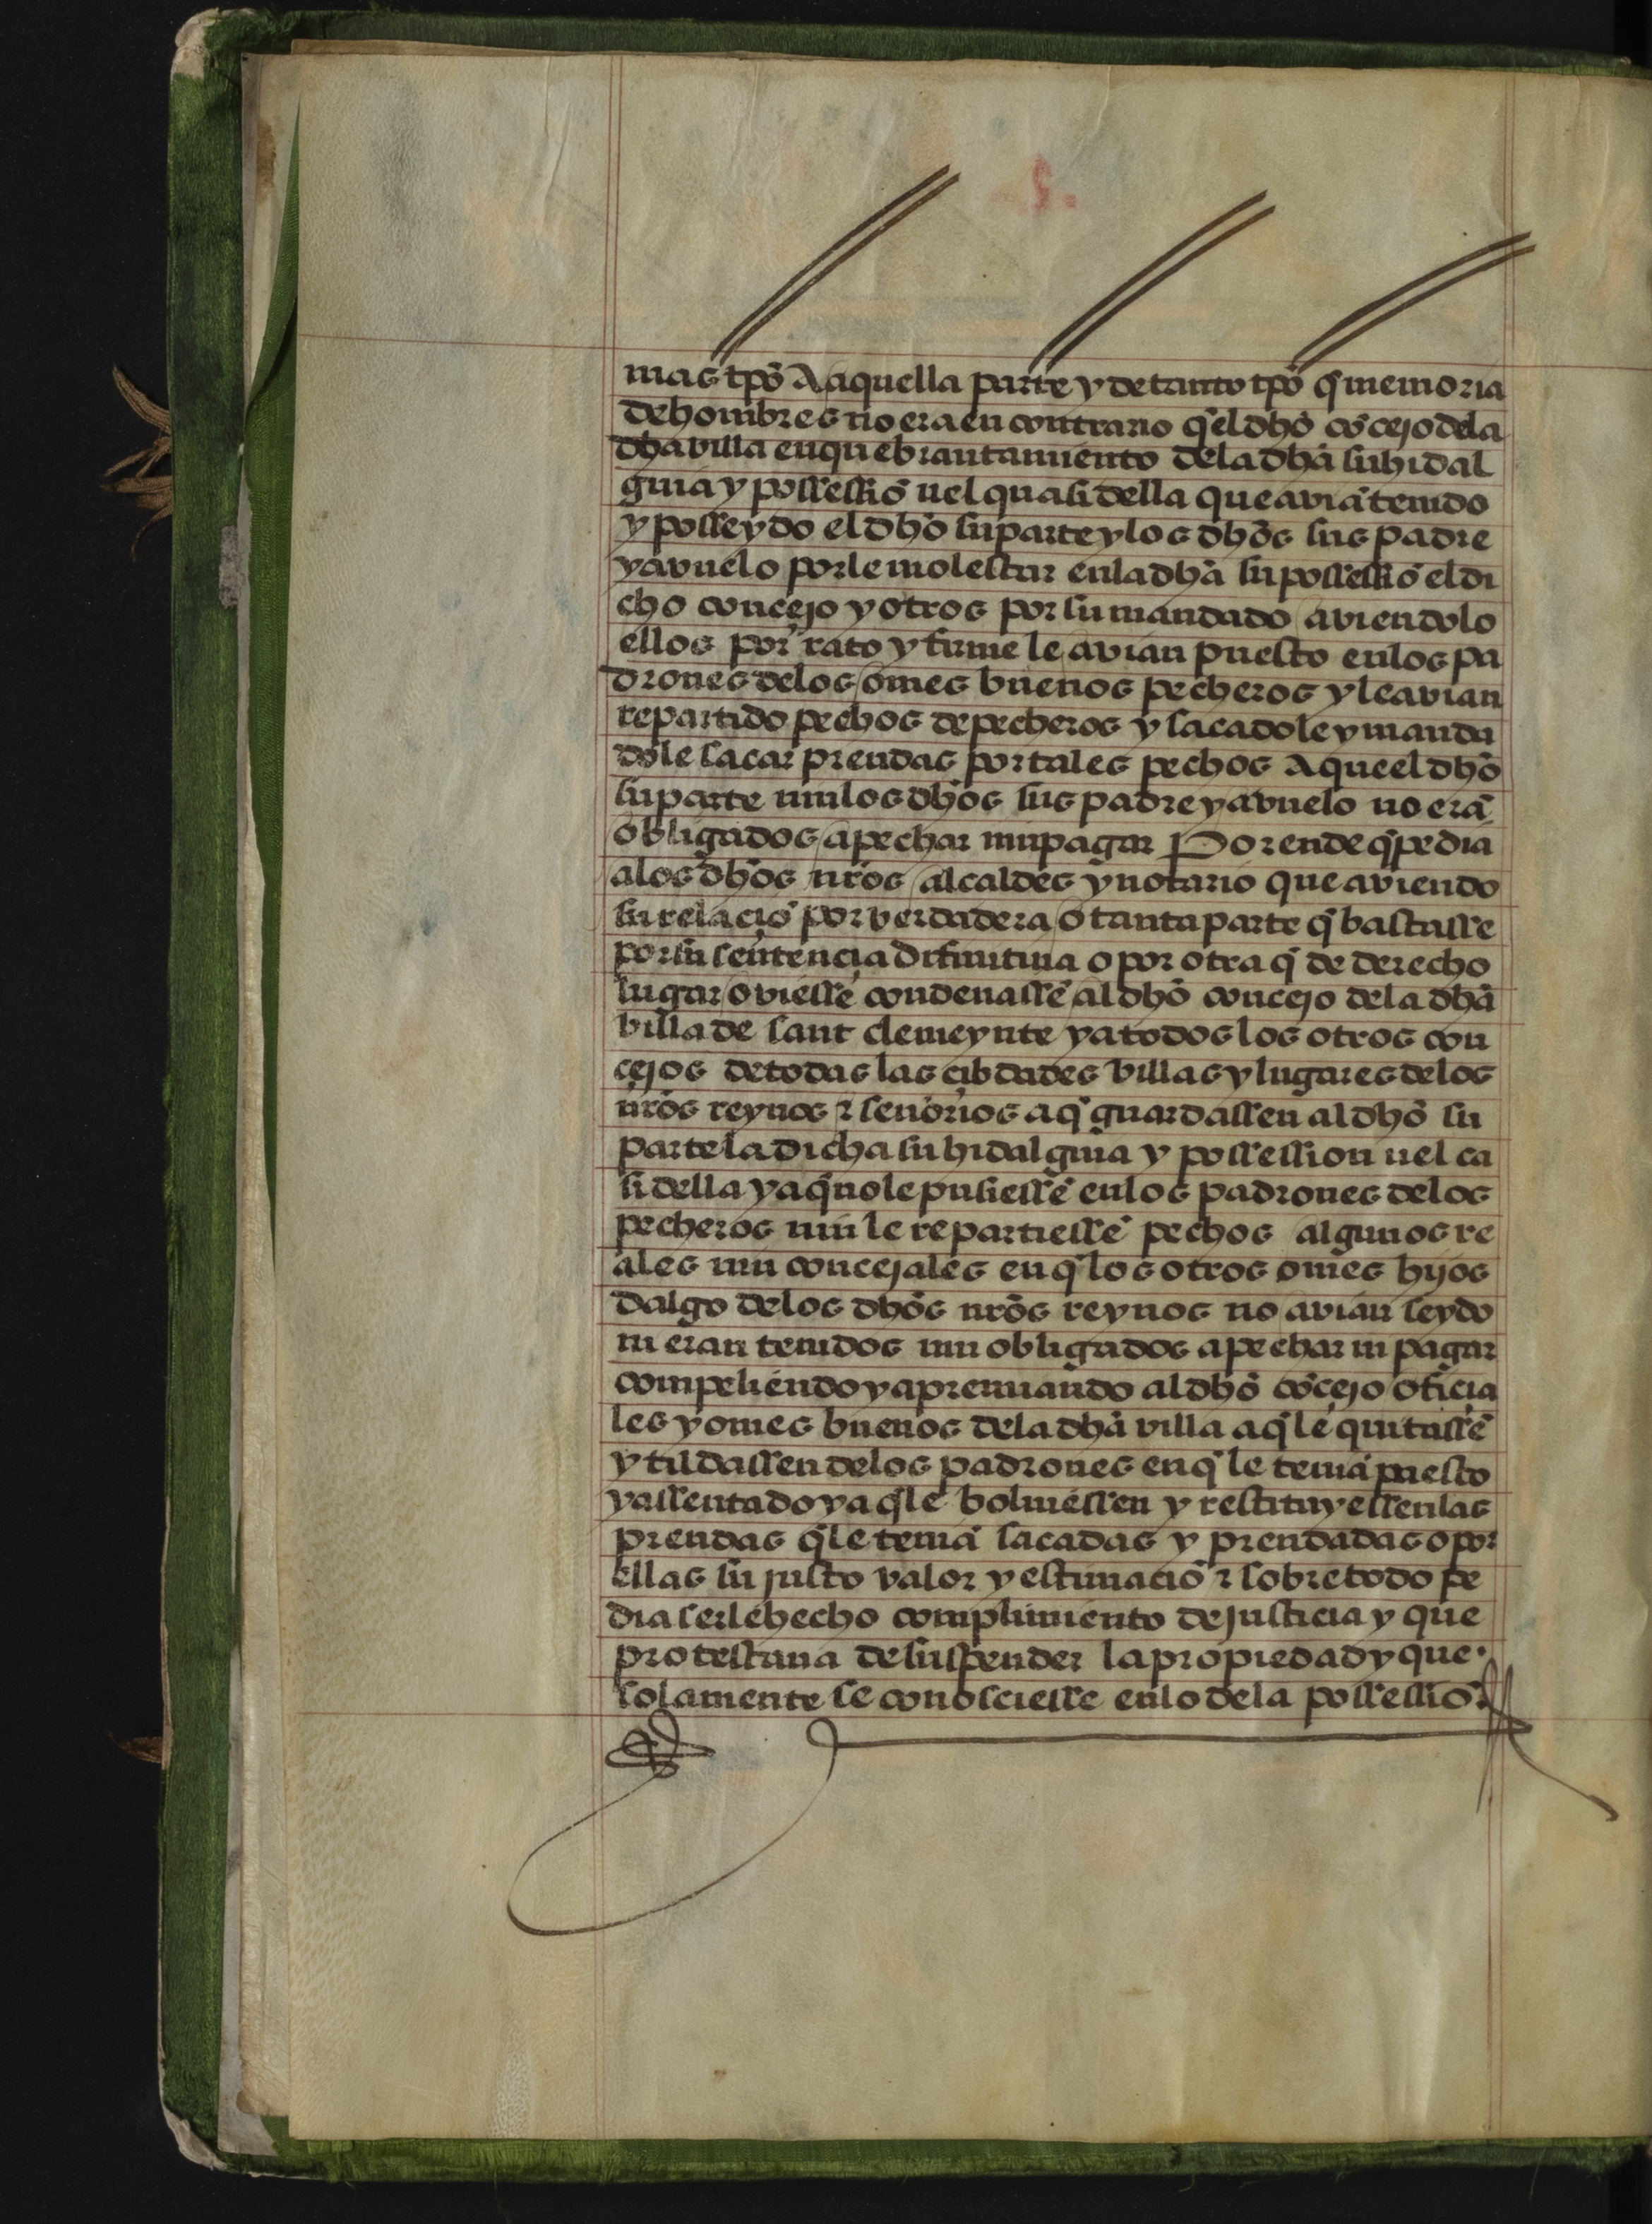 mas tp̄o A aquella parte y de tanto tp̄o q̄ memoria
de hombres no era en contrario q̄ el dh̄o cōcejo de la
dha villa en quebrantamiento de la dhā su hidal
guia y possessiō uel quasi della que aviā tenido
y posseydo el dhō su parte y los dhōs sus padre
y avuelo por le molestar en la dhā su possessiō el di
cho concejo y otros por su mandado aviendolo
ellos por rato y firme le avian puesto en los pa
drones de los omes buenos pecheros y le avian
repartido pechos de pecheros y sacadole y manda
dole sacar prendas por tales pechos A que el dhō
su parte nin los dhōs sus padre y avuelo no erā
obligados a pechar nin pagar Por ende q̄ pedia
a los dhōs nr̄os alcaldes y notario que aviendo
su relaciō por verdadera o tanta parte q̄ bastasse
por su sentencia difinitiua o por otra q̄ de derecho
lugar oviesse condenassē al dhō concejo de la dhā
villa de sant clemeynte y a todos los otros con
cejos de todas las cibdades villas y lugares de los
nr̄os reynos ⁊ señorios a q̄ guardassen al dhō su
parte la dicha su hidalguia y possession uel ca
si della y a q̄ no le pusiessē en los padrones de los
pecheros nin le repartiessē pechos algunos re
ales nin concejales en q̄ los otros omes hijos
dalgo de los dhōs nr̄os reynos no avian seydo
ni eran tenidos nin obligados a pechar ni pagar
compeliendo y apremiando al dhō cōcejo oficia
les y omes buenos de la dhā villa a q̄ le quitassē
y tildassen de los padrones en q̄ le teniā puesto
y assentado y a q̄ le boluiessen y restituyessen las
prendas q̄ le teniā sacadas y prendadas o por
ellas su justo valor y estimaciō ⁊ sobre todo pe
dia serle hecho complimiento de justicia y que
protestaua de suspender la propiedad y que
solamente se conosciesse en lo de la possessiō.